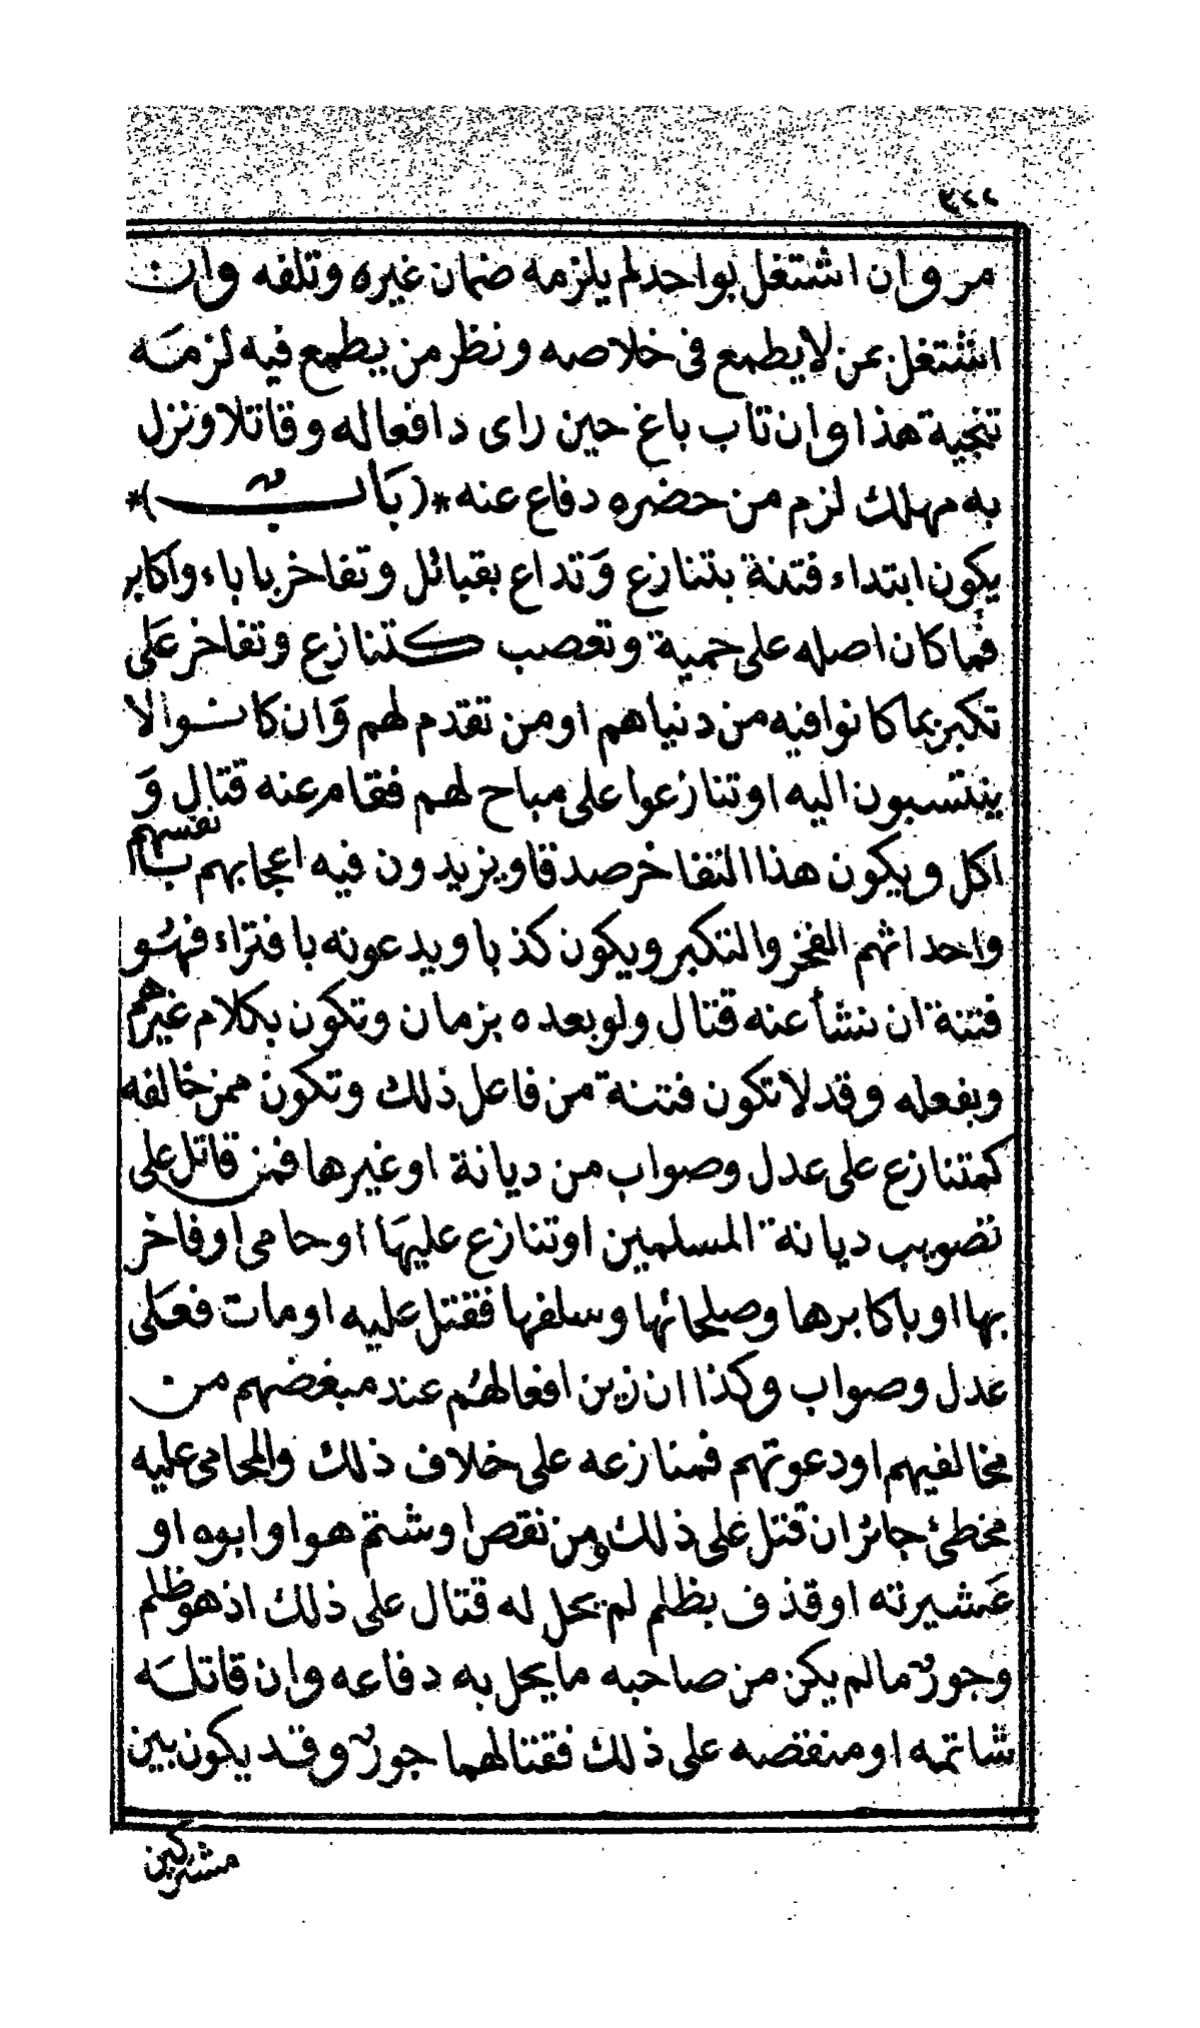 مر وان اشتغل بواحد لم يلزمه ضمان غيره وتلفه وان
اشتغل بمن لا يطمع فى خلاصه ونظر من يطمع فيه لزمه
تنجية هذا وان تاب باغ حين راى دافعا له وقاتلا ونزل
به مهلك لزم من حضره دفاع عنه *( باب )*
يكون ابتداء فتنة بتنازع وتداع بقبائل وتفاخر باباء واكابر
فما كان اصله على حمية وتعصب كتنازع وتفاخر على
تكبر بما كانوا فيه من دنياهم او من تقدم لهم وان كانوا لا
ينتسبون اليه او تنازعوا على مباح لهم فقام عنه قتال و
اكل ويكون هذا التفاخر صدقا ويزيدون فيه اعجابهم بانفسهم
واحد اثم الفخر والتكبر ويكون كذبا ويدعونه بافتراء فهو
فتنة ان نشأ عنه قتال ولو بعده بزمان وتكون بكلام غيرهم
وبفعله وقد لا تكون فتنة من فاعل ذلك وتكون ممن خالفه
كمتنازع على عدل وصواب من ديانة او غيرها فمن قاتل على
تصويب ديانة المسلمين او تنازع عليها او حامى او فاخر
بها او باكابرها وصلحائها وسلفها فقتل عليه او مات فعلى
عدل وصواب وكذا ان زين افعالهم عند مبغضهم من
مخالفيهم او دعوتهم فمنازعه على خلاف ذلك والمحامى عليه
مخطئ جائز ان قتل على ذلك ومن نقص او شتم هو او ابوه او
عشيرته او قذف بظلم لم يحل له قتال على ذلك اذ هو ظلم
وجور ما لم يكن من صاحبه ما يحل به دفاعه وان قاتله
شاتمه او منقصه على ذلك فقتالهما جور وقد يكون بين
مشركين